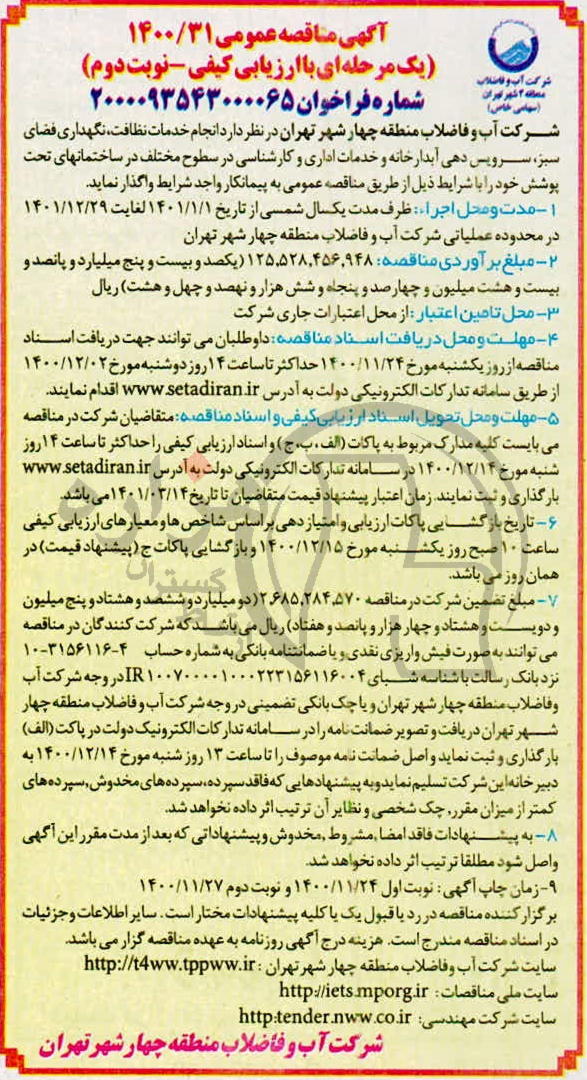 آگهی مناقصه عمومی ۱۴۰۰/۳۱
(یک مرحله‌ای با ارزیابی کیفی - نوبت دوم)
شماره فراخوان ۲۰۰۰۰۹۳۵۴۳۰۰۰۰۶۵
شرکت آب و فاضلاب
منطقه ۴ شهر تهران
(سهامی خاص)
شرکت آب و فاضلاب منطقه چهار شهر تهران در نظر دارد انجام خدمات نظافت، نگهداری فضای
سبز، سرویس دهی آبدارخانه و خدمات اداری و کارشناسی در سطوح مختلف در ساختمانهای تحت
پوشش خود را با شرایط ذیل از طریق مناقصه عمومی به پیمانکار واجد شرایط واگذار نماید.
۱- مدت و محل اجراء: ظرف مدت یکسال شمسی از تاریخ ۱۴۰۱/۱/۱ لغایت ۱۴۰۱/۱۲/۲۹
در محدوده عملیاتی شرکت آب و فاضلاب منطقه چهار شهر تهران
۲- مبلغ برآوردی مناقصه: ۱۲۵,۵۲۸,۴۵۶,۹۴۸ (یکصد و بیست و پنج میلیارد و پانصد و
بیست و هشت میلیون و چهارصد و پنجاه و شش هزار و نهصد و چهل و هشت) ریال
۳- محل تامین اعتبار: از محل اعتبارات جاری شرکت
۴- مهلت و محل دریافت اسناد مناقصه: داوطلبان می توانند جهت دریافت اسناد
مناقصه از روز یکشنبه مورخ ۱۴۰۰/۱۱/۲۴ حداکثر تا ساعت ۱۴ روز دوشنبه مورخ ۱۴۰۰/۱۲/۰۲
از طریق سامانه تدارکات الکترونیکی دولت به آدرس www.setadiran.ir اقدام نمایند.
۵- مهلت و محل تحویل اسناد ارزیابی کیفی و اسناد مناقصه: متقاضیان شرکت در مناقصه
می بایست کلیه مدارک مربوط به پاکات (الف، ب، ج) و اسناد ارزیابی کیفی را حداکثر تا ساعت ۱۴ روز
شنبه مورخ ۱۴۰۰/۱۲/۱۴ در سامانه تدارکات الکترونیکی دولت به آدرس www.setadiran.ir
بارگذاری و ثبت نمایند. زمان اعتبار پیشنهاد قیمت متقاضیان تا تاریخ ۱۴۰۱/۰۳/۱۴ می باشد.
۶- تاریخ بازگشایی پاکات ارزیابی و امتیازدهی براساس شاخص ها و معیارهای ارزیابی کیفی
ساعت ۱۰ صبح روز یکشنبه مورخ ۱۴۰۰/۱۲/۱۵ و بازگشایی پاکات ج (پیشنهاد قیمت) در
همان روز می باشد.
۷- مبلغ تضمین شرکت در مناقصه ۲,۶۸۵,۲۸۴,۵۷۰ (دو میلیارد و ششصد و هشتاد و پنج میلیون
و دویست و هشتاد و چهار هزار و پانصد و هفتاد) ریال می باشد که شرکت کنندگان در مناقصه
می توانند به صورت فیش واریزی نقدی و یا ضمانتنامه بانکی به شماره حساب ۴-۳۱۵۶۱۱۶-۱۰
نزد بانک رسالت با شناسه شبای IR ۱۰۰۷۰۰۰۰۱۰۰۰۲۲۳۱۵۶۱۱۶۰۰۴ در وجه شرکت آب
وفاضلاب منطقه چهار شهر تهران و یا چک بانکی تضمینی در وجه شرکت آب و فاضلاب منطقه چهار
شهر تهران دریافت و تصویر ضمانت نامه را در سامانه تدارکات الکترونیک دولت در پاکت (الف)
بارگذاری و ثبت نماید و اصل ضمانت نامه موصوف را تا ساعت ۱۳ روز شنبه مورخ ۱۴۰۰/۱۲/۱۴ به
دبیرخانه این شرکت تسلیم نماید و به پیشنهادهایی که فاقد سپرده، سپرده های مخدوش، سپرده های
کمتر از میزان مقرر، چک شخصی و نظایر آن ترتیب اثر داده نخواهد شد.
۸- به پیشنهادات فاقد امضا، مشروط، مخدوش و پیشنهاداتی که بعد از مدت مقرر این آگهی
واصل شود مطلقا ترتیب اثر داده نخواهد شد.
۹- زمان چاپ آگهی: نوبت اول ۱۴۰۰/۱۱/۲۴ و نوبت دوم ۱۴۰۰/۱۱/۲۷
برگزارکننده مناقصه در رد یا قبول یک یا کلیه پیشنهادات مختار است. سایر اطلاعات و جزئیات
در اسناد مناقصه مندرج است. هزینه درج آگهی روزنامه به عهده مناقصه گزار می باشد.
سایت شرکت آب وفاضلاب منطقه چهار شهر تهران: http://t4ww.tppww.ir
سایت ملی مناقصات: http://iets.mporg.ir
سایت شرکت مهندسی: http:tender.nww.co.ir
شرکت آب و فاضلاب منطقه چهار شهر تهران